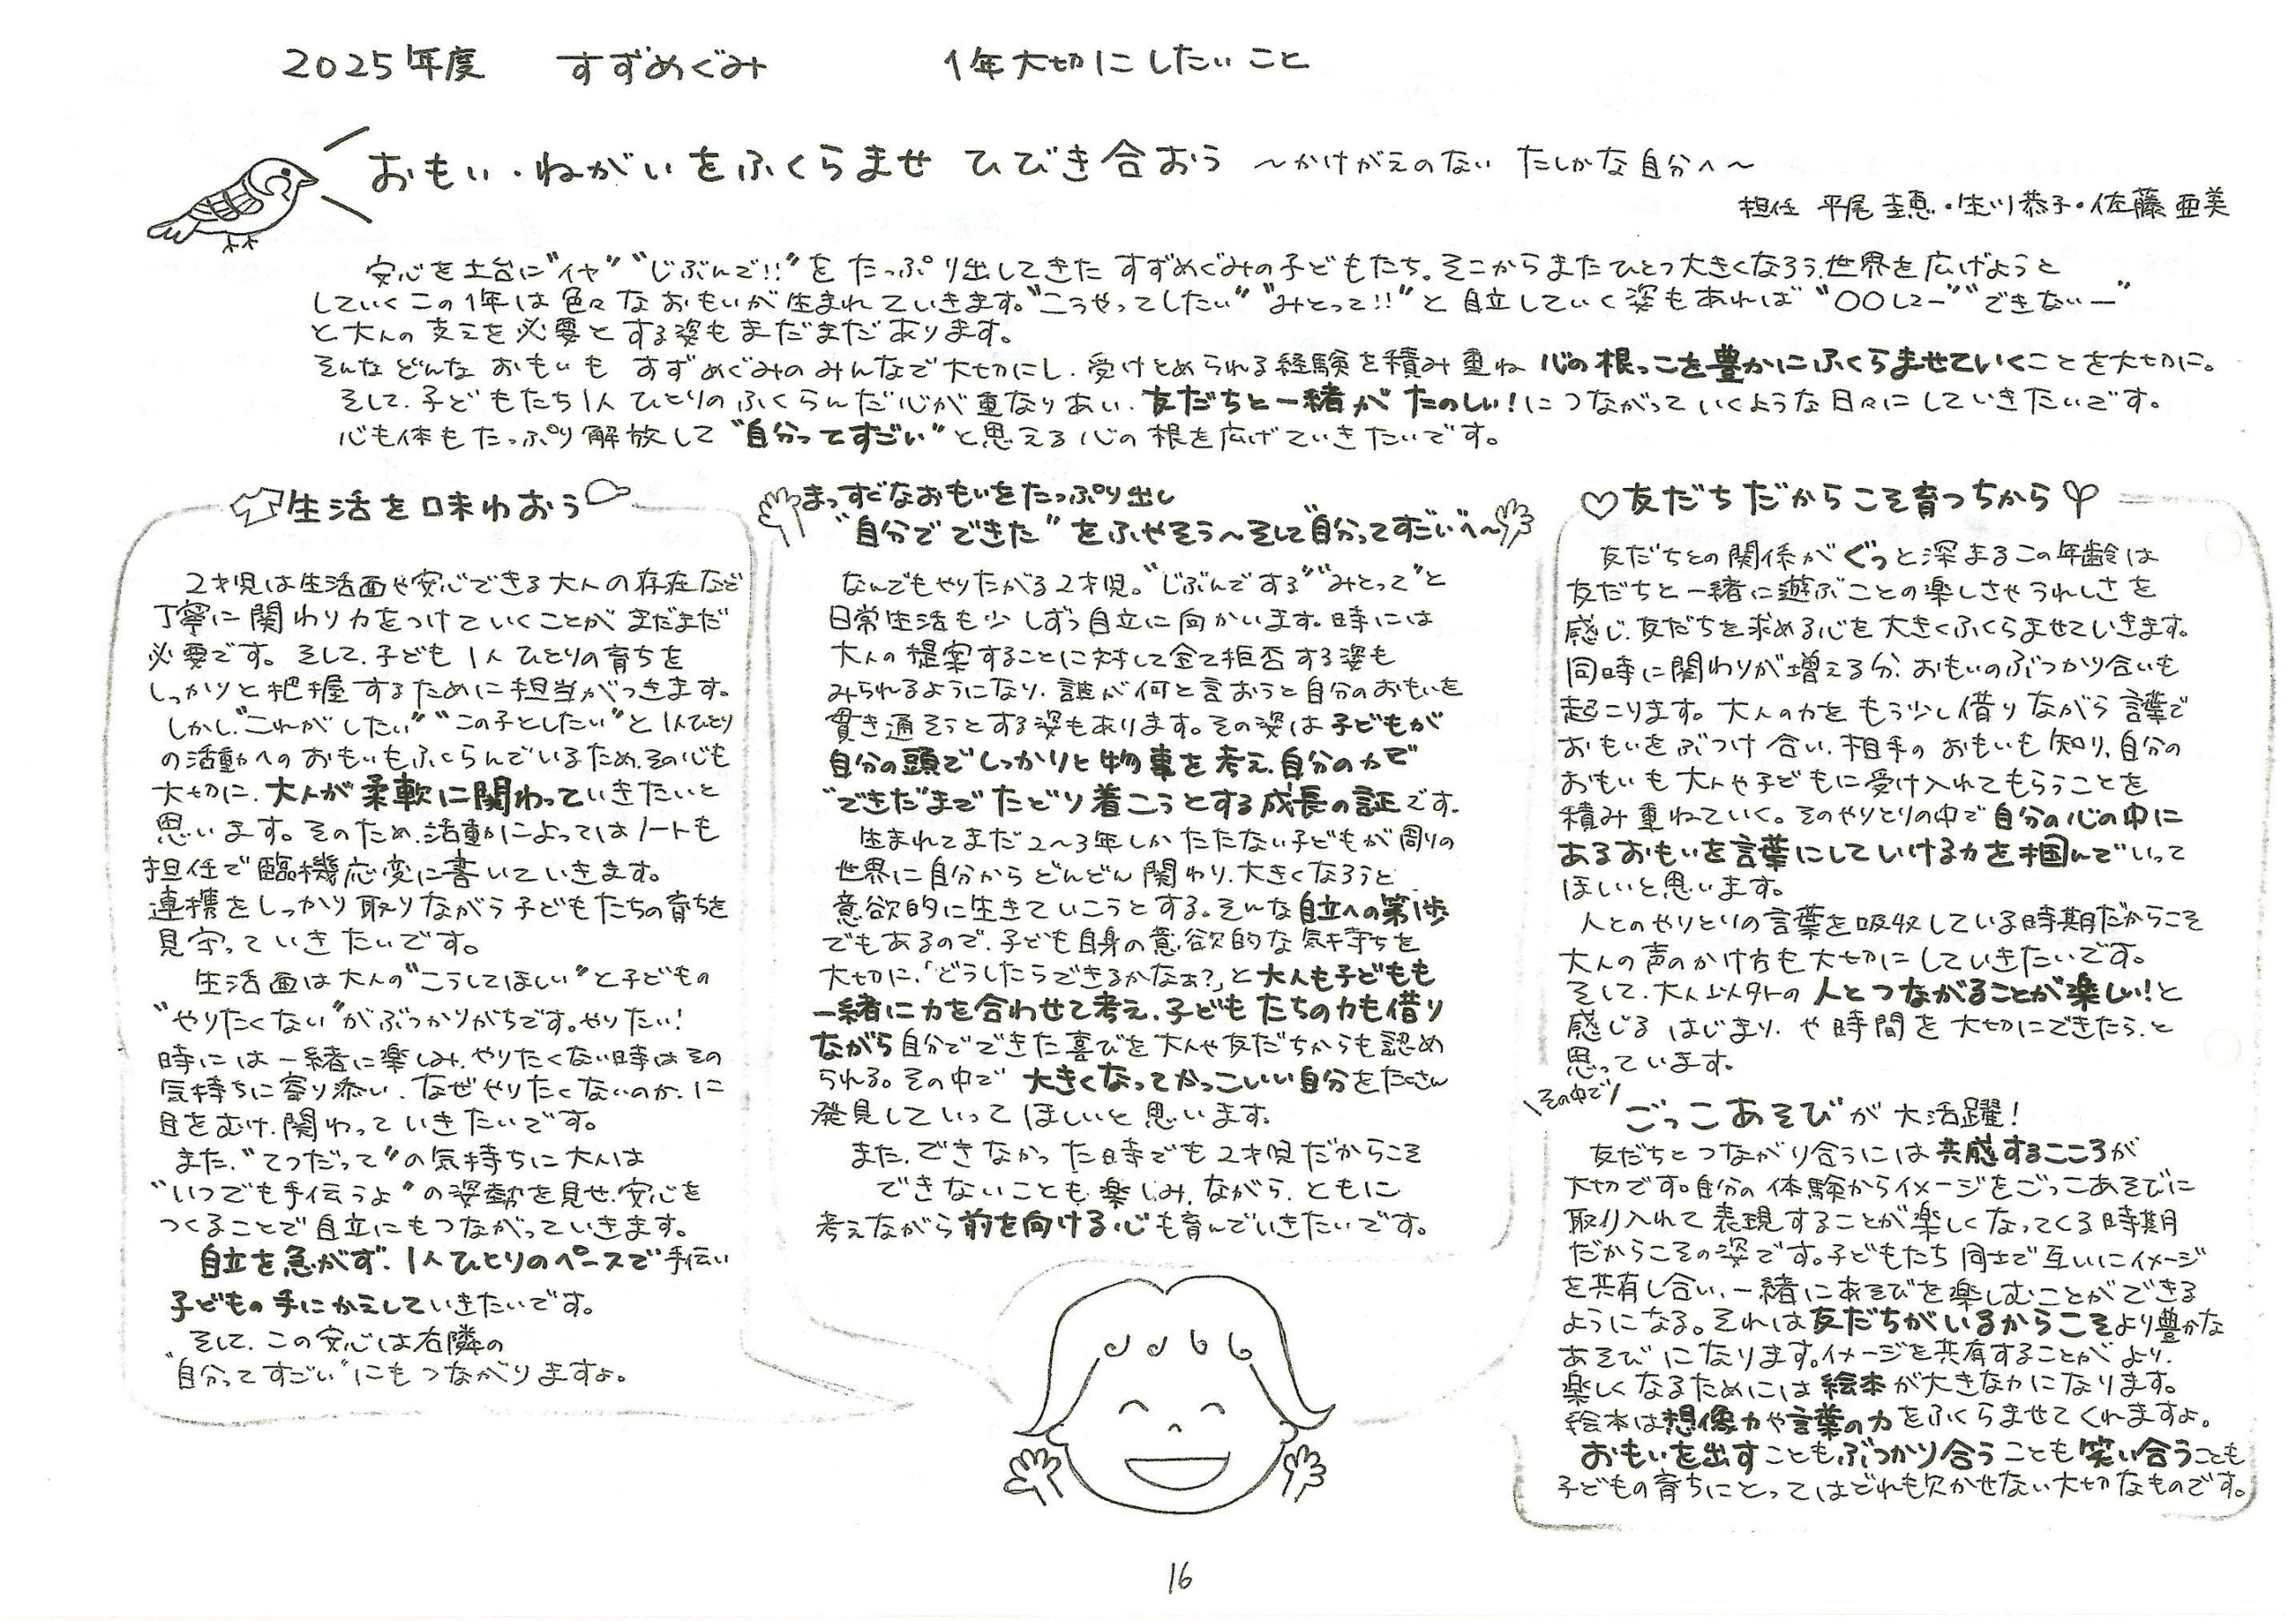 2025年度 すずめぐみ 1年大切にしたいこと
おもい・ねがいをふくらませ ひびき合おう ～かけがえのない たしかな自分へ～
担任 平尾圭恵・生川恭子・佐藤亜美
安心を土台に"イヤ" "じぶんで!!"を たっぷり出してきた すずめぐみの子どもたち。そこからまたひとつ大きくなろう、世界を広げようと
していくこの1年は色々なおもいが生まれていきます。"こうやってしたい" "みとって!!"と自立していく姿もあれば "〇〇してー" "できないー"
と大人の支えを必要とする姿もまだまだあります。
そんなどんなおもいも すずめぐみのみんなで大切にし、受けとめられる経験を積み重ね 心の根っこを豊かにふくらませていくことを大切に。
そして、子どもたち1人ひとりのふくらんだ心が重なりあい、友だちと一緒が たのしい!につながっていくような日々にしていきたいです。
心も体もたっぷり解放して "自分ってすごい"と思える心の根を広げていきたいです。
生活を味わおう
2才児は生活面や安心できる大人の存在など
丁寧に関わり力をつけていくことがまだまだ
必要です。そして、子ども1人ひとりの育ちを
しっかりと把握するために担当がつきます。
しかし、"これがしたい" "この子としたい"と1人ひとり
の活動へのおもいもふくらんでいるため、その心も
大切に、大人が柔軟に関わっていきたいと
思います。そのため、活動によってはノートも
担任で臨機応変に書いていきます。
連携をしっかり取りながら子どもたちの育ちを
見守っていきたいです。
生活面は大人の"こうしてほしい"と子どもの
"やりたくない"がぶつかりがちです。やりたい!
時には一緒に楽しみ、やりたくない時はその
気持ちに寄り添い、なぜやりたくないのか、に
目をむけ、関わっていきたいです。
また、"てつだって"の気持ちに大人は
"いつでも手伝うよ"の姿勢を見せ、安心を
つくることで自立にもつながっていきます。
自立を急がず、1人ひとりのペースで手伝い
子どもの手にかえしていきたいです。
そして、この安心は右隣の
"自分ってすごい"にもつながりますよ。
まっすぐなおもいをたっぷり出し
"自分でできた"をふやそう～そして"自分ってすごい"へ～
なんでもやりたがる2才児。"じぶんでする" "みとって"と
日常生活も少しずつ自立に向かいます。時には
大人の提案することに対して全て拒否する姿も
みられるようになり、誰が何と言おうと自分のおもいを
貫き通そうとする姿もあります。その姿は子どもが
自分の頭でしっかりと物事を考え、自分の力で
"できた"までたどり着こうとする成長の証です。
生まれてまだ2～3年しかたたない子どもが周りの
世界に自分からどんどん関わり、大きくなろうと
意欲的に生きていこうとする。そんな自立への第1歩
でもあるので、子ども自身の意欲的な気持ちを
大切に、「どうしたらできるかなぁ?」と大人も子どもも
一緒に力を合わせて考え、子どもたちの力も借り
ながら自分でできた喜びを大人や友だちからも認め
られる。その中で 大きくなってかっこいい自分をたくさん
発見していってほしいと思います。
また、できなかった時でも2才児だからこそ
できないことも楽しみながら、ともに
考えながら前を向ける心も育んでいきたいです。
友だちだからこそ育つちから
友だちとの関係がぐっと深まるこの年齢は
友だちと一緒に遊ぶことの楽しさやうれしさを
感じ、友だちを求める心を大きくふくらませていきます。
同時に関わりが増える分、おもいのぶつかり合いも
起こります。大人の力をもう少し借りながら言葉で
おもいをぶつけ合い、相手のおもいも知り、自分の
おもいも大人や子どもに受け入れてもらうことを
積み重ねていく。そのやりとりの中で自分の心の中に
あるおもいを言葉にしていける力を掴んでいって
ほしいと思います。
人とのやりとりの言葉を吸収している時期だからこそ
大人の声のかけ方も大切にしていきたいです。
そして、大人以外の人とつながることが楽しい!と
感じるはじまり、や時間を大切にできたら、と
思っています。
その中で
ごっこあそびが大活躍!
友だちとつながり合うには共感するこころが
大切です。自分の体験からイメージをごっこあそびに
取り入れて表現することが楽しくなってくる時期
だからこその姿です。子どもたち同士で互いにイメージ
を共有し合い、一緒にあそびを楽しむことができる
ようになる。それは友だちがいるからこそより豊かな
あそびになります。イメージを共有することがより、
楽しくなるためには絵本が大きな力になります。
絵本は想像力や言葉の力をふくらませてくれますよ。
おもいを出すこともぶつかり合うことも笑い合うことも
子どもの育ちにとってはどれも欠かせない大切なものです。
16